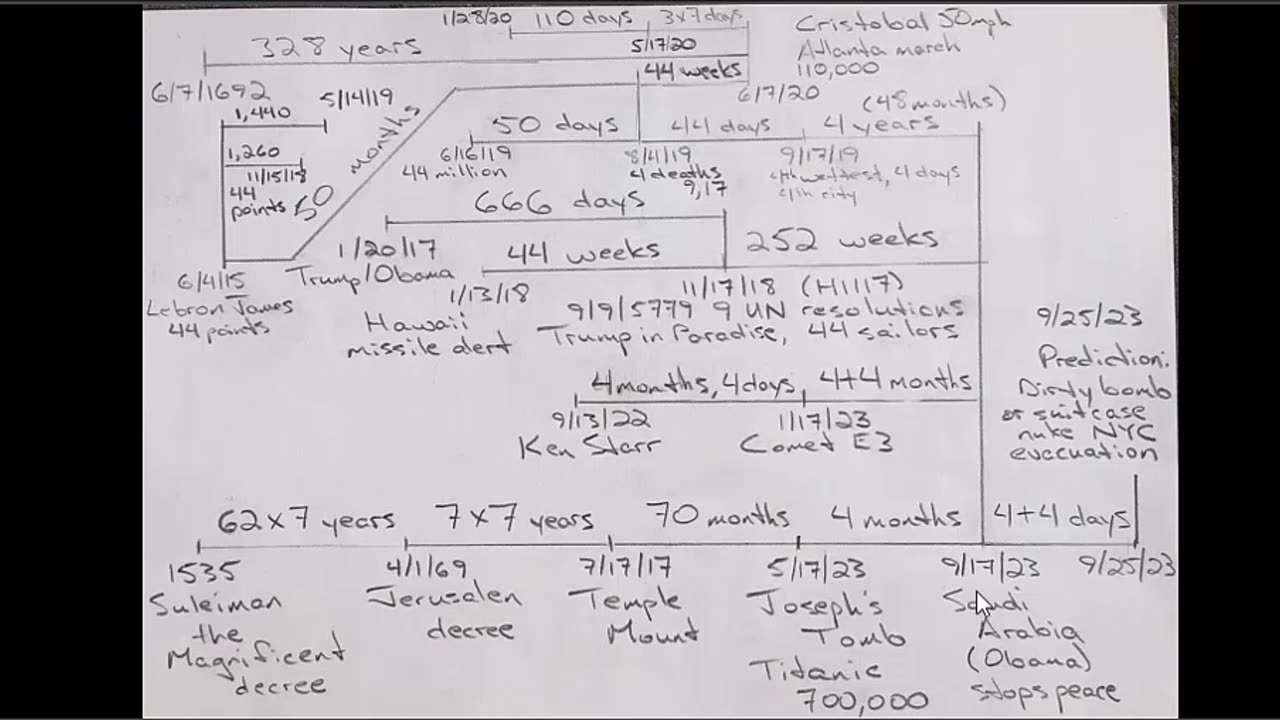 1/28/20 110 days 3x7 days
Cristobal 50mph
328 years
5/17/20
Atlanta march
44 weeks
110,000
6/7/1692
5/14/19
6/7/20
(48 months)
1,440
50 days
44 days
4 years
months
50
1,260
6/16/19
8/4/19
9/17/19
11/15/18
44 million
4 deaths
4th wettest, 4 days
44
9,17
4th city
points
666 days
1/20/17
44 weeks
252 weeks
6/4/15
Trump/Obama
1/13/18
11/17/18 (H1117)
Lebron James
9/9/5779 9 UN resolutions
44 points
Hawaii
Trump in Paradise, 44 sailors
missile alert
9/25/23
Prediction:
Dirty bomb
or suitcase
nuke NYC
evacuation
4months, 4days, 4+4 months
9/13/22
1/17/23
Ken Starr
Comet E3
62x7 years 7x7 years 70 months 4 months 4+4 days
1535 4/1/69 7/17/17 5/17/23 9/17/23 9/25/23
Suleiman
Jerusalen
Temple
Joseph's
Saudi
the
decree
Mount
Tomb
Arabia
Magnificent
Titanic
(Obama)
decree
700,000
stops peace